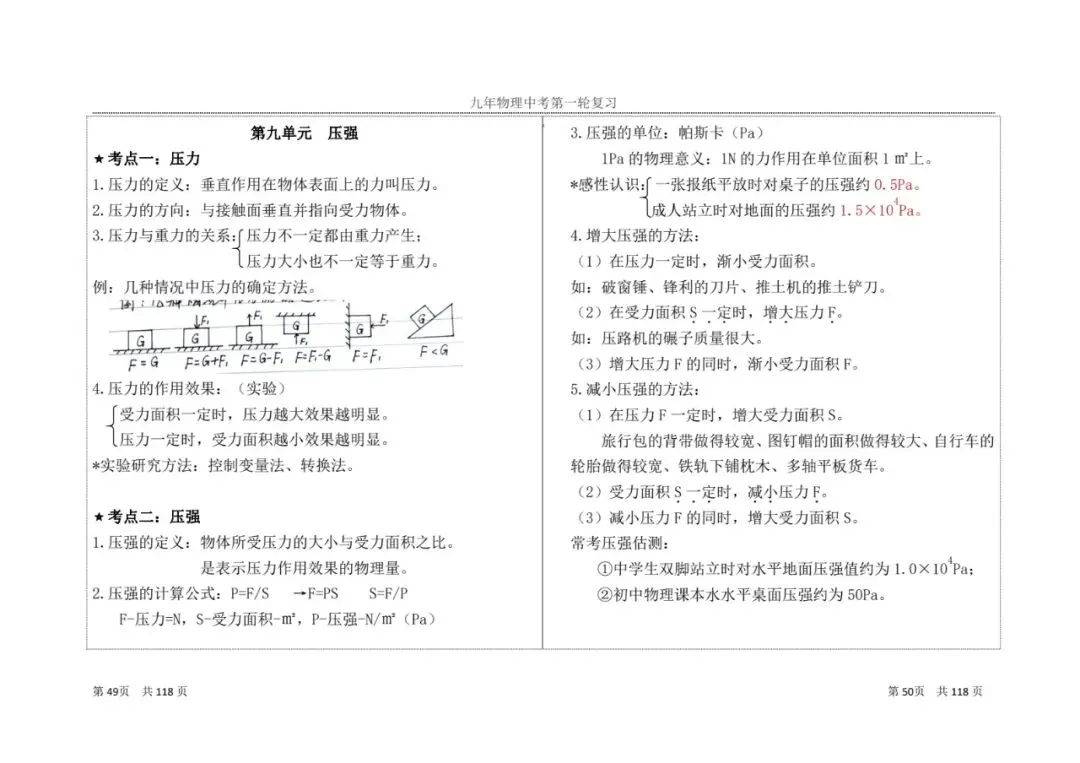 九年物理中考第一轮复习
第九单元 压强
★考点一：压力
1.压力的定义：垂直作用在物体表面上的力叫压力。
2.压力的方向：与接触面垂直并指向受力物体。
3.压力与重力的关系：压力不一定都由重力产生；
压力大小也不一定等于重力。
例：几种情况中压力的确定方法。
G F₁ G F₁ G G F₁ G F₁ G
F=G F=G+F₁ F=G-F₁ F=F₁-G F=F₁ F<G
4.压力的作用效果：（实验）
受力面积一定时，压力越大效果越明显。
压力一定时，受力面积越小效果越明显。
*实验研究方法：控制变量法、转换法。
★考点二：压强
1.压强的定义：物体所受压力的大小与受力面积之比。
是表示压力作用效果的物理量。
2.压强的计算公式：P=F/S →F=PS S=F/P
F-压力=N，S-受力面积-㎡，P-压强-N/㎡（Pa）
3.压强的单位：帕斯卡（Pa）
1Pa的物理意义：1N的力作用在单位面积1㎡上。
*感性认识：一张报纸平放时对桌子的压强约0.5Pa。
成人站立时对地面的压强约1.5×10⁴Pa。
4.增大压强的方法：
（1）在压力一定时，渐小受力面积。
如：破窗锤、锋利的刀片、推土机的推土铲刀。
（2）在受力面积S一定时，增大压力F。
如：压路机的碾子质量很大。
（3）增大压力F的同时，渐小受力面积F。
5.减小压强的方法：
（1）在压力F一定时，增大受力面积S。
旅行包的背带做得较宽、图钉帽的面积做得较大、自行车的
轮胎做得较宽、铁轨下铺枕木、多轴平板货车。
（2）受力面积S一定时，减小压力F。
（3）减小压力F的同时，增大受力面积S。
常考压强估测：
①中学生双脚站立时对水平地面压强值约为1.0×10⁴Pa；
②初中物理课本水水平桌面压强约为50Pa。
第49页 共118页
第50页 共118页